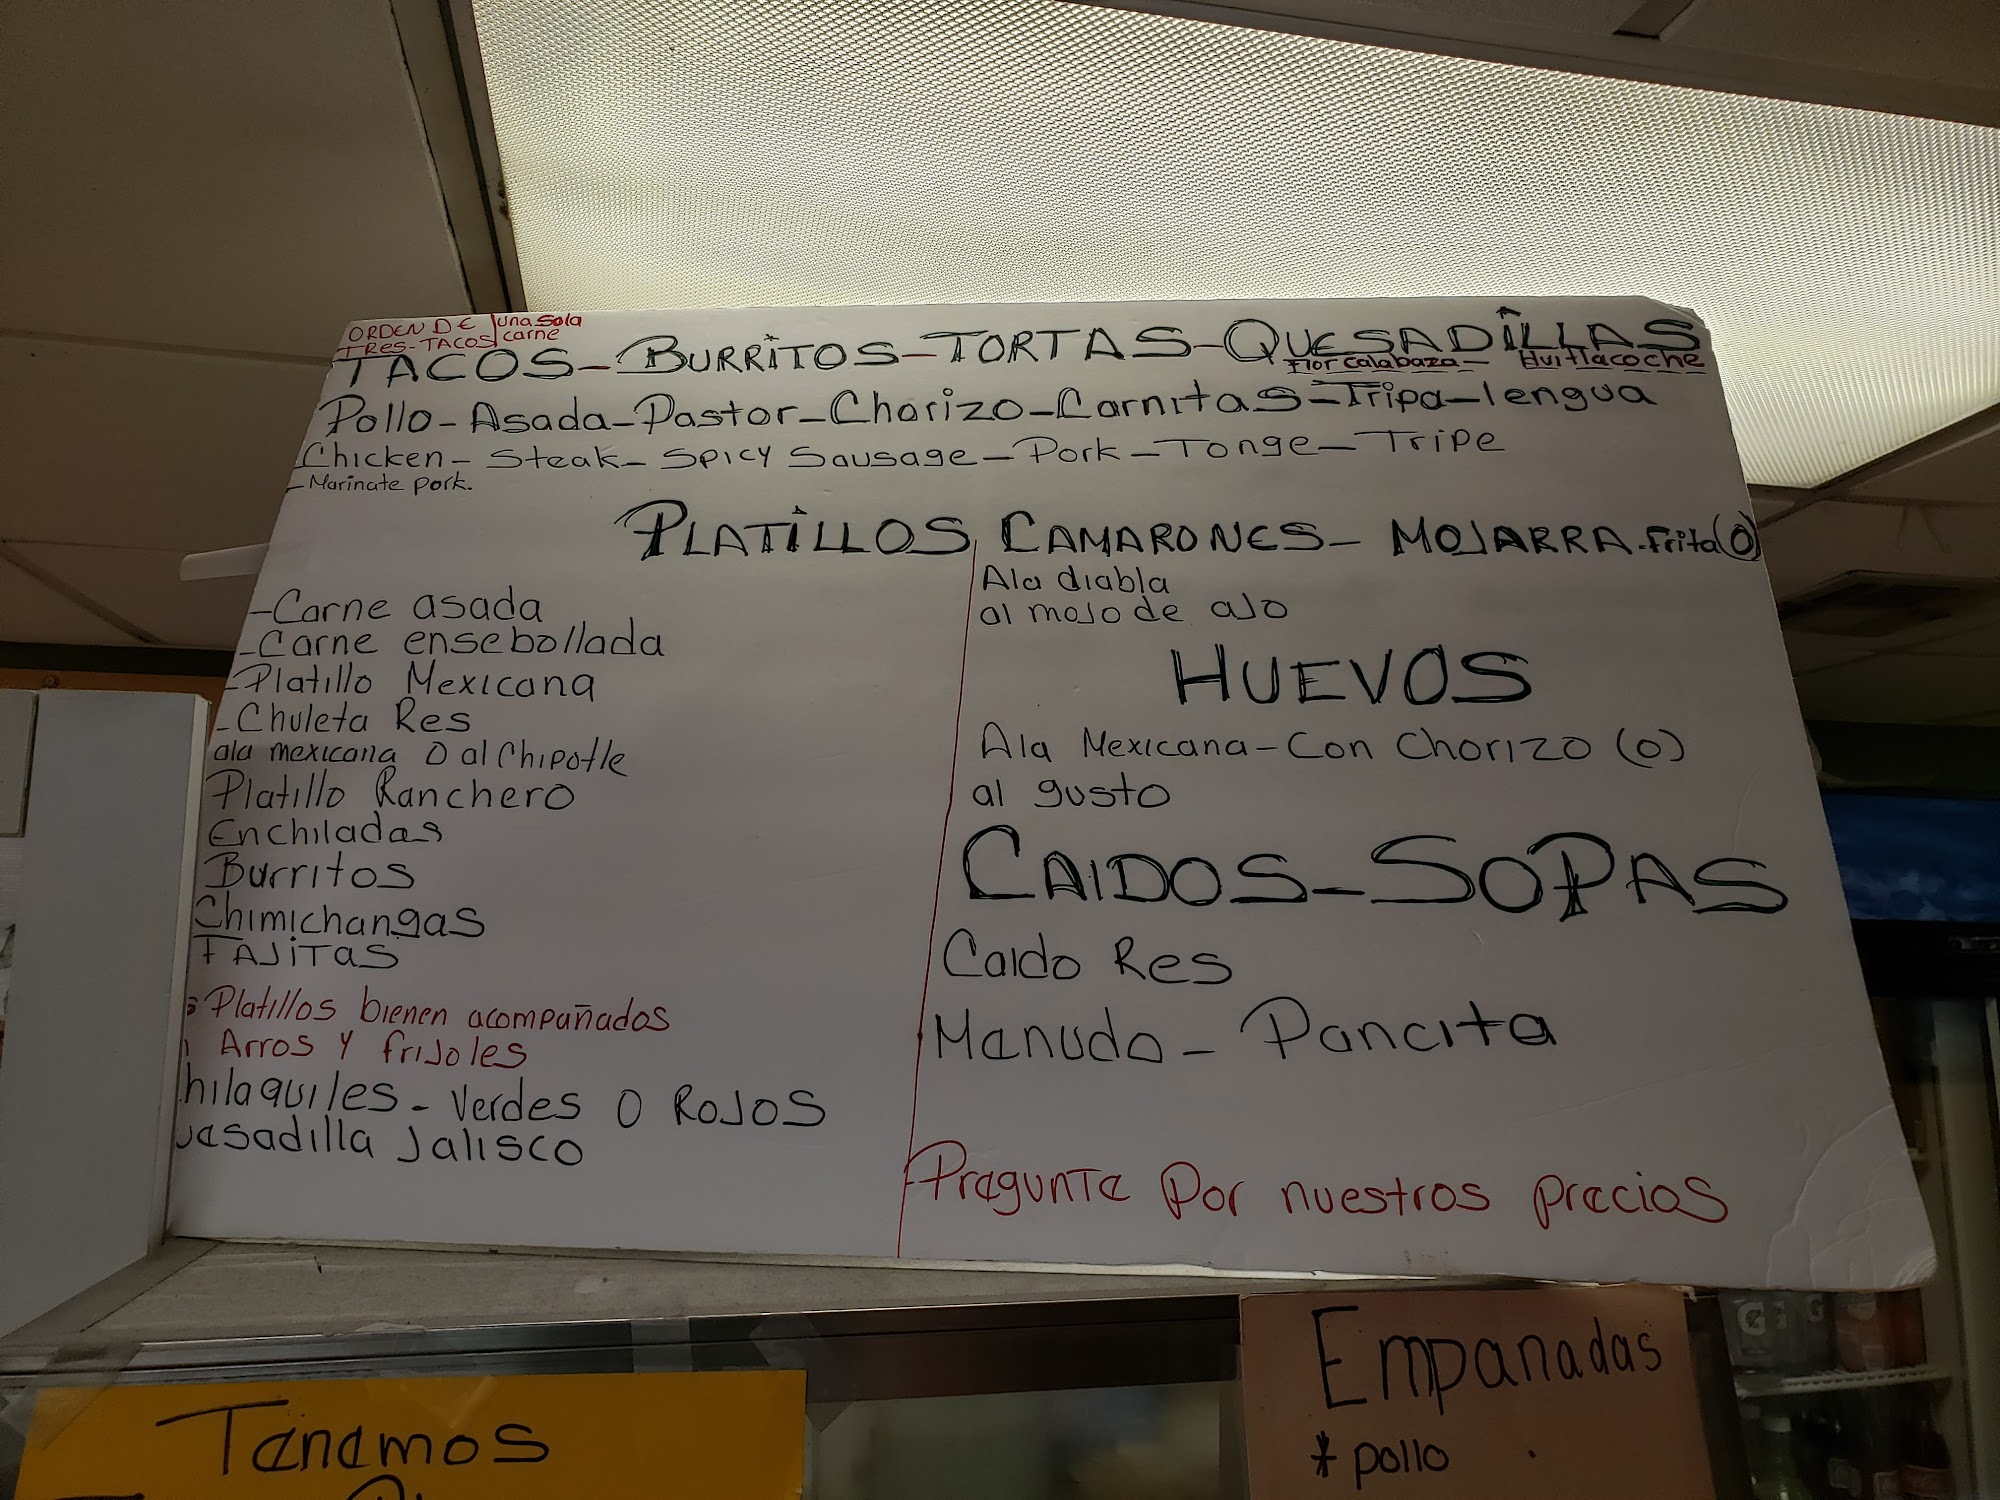 ORDEN DE una sola
TRES-TACOS carne
TACOS-BURRITOS-TORTAS-QUESADILLAS
Flor calabaza- Huitlacoche
Pollo-Asada-Pastor-Chorizo-Carnitas-Tripa-lengua
Chicken-Steak-Spicy Sausage-Pork-Tonge-Tripe
-Marinate pork.
PLATILLOS
-Carne asada
-Carne ensebollada
-Platillo Mexicana
-Chuleta Res
ala mexicana O al Chipotle
Platillo Ranchero
Enchiladas
Burritos
Chimichangas
FAJITAS
Platillos bienen acompañados
Arros y frijoles
hilaquiles-Verdes O Rojos
uesadilla Jalisco
CAMARONES- MOJARRA-frita(O)
Ala diabla
al mojo de ajo
HUEVOS
Ala Mexicana-Con Chorizo (o)
al gusto
CALDOS-SOPAS
Caldo Res
Menudo-Pancita
Pregunte Por nuestros precios
Tenemos
Empanadas
* pollo